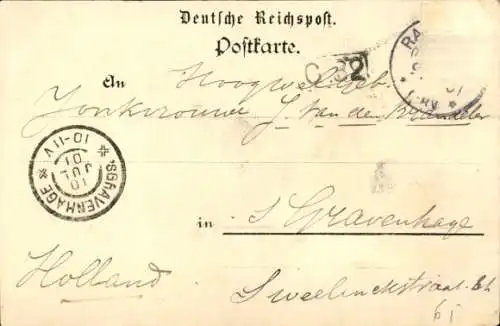 Deutsche Reichspost.
Postkarte.
C 32
An Hoogwelgeb.
Jonkvrouwe J. van den
'SGRAVENHAGE
10-11V
in s Gravenhage
Holland
Sweelinckstraat
61